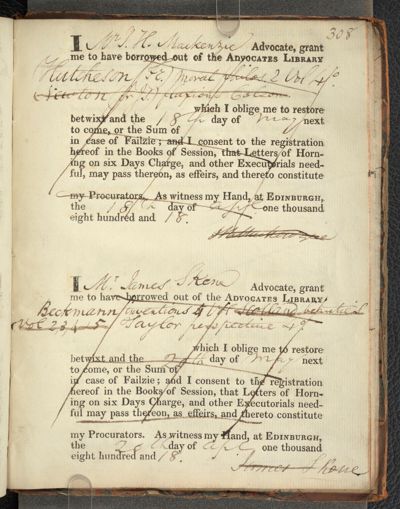 308
I Mr J. H. Mackenzie Advocate, grant
me to have borrowed out of the ADVOCATES LIBRARY
Hutcheson moral philos 2 Vol 4o
Newton
which I oblige me to restore
betwixt and the 18th day of May next
to come, or the Sum of
in case of Failzie; and I consent to the registration
hereof in the Books of Session, that Letters of Horn-
ing on six Days Charge, and other Executorials need-
ful, may pass thereon, as effeirs, and thereto constitute
my Procurators. As witness my Hand, at EDINBURGH,
the 18th day of Apl one thousand
eight hundred and 18.
J H Mackenzie
I Mr James Skene Advocate, grant
me to have borrowed out of the ADVOCATES LIBRARY
Beckmann inventions 4 Vol
Vol 2 3 4 5 Taylor perspective 4o
which I oblige me to restore
betwixt and the day of May next
to come, or the Sum of
in case of Failzie; and I consent to the registration
hereof in the Books of Session, that Letters of Horn-
ing on six Days Charge, and other Executorials need-
ful may pass thereon, as effeirs, and thereto constitute
my Procurators. As witness my Hand, at EDINBURGH,
the day of Apl one thousand
eight hundred and 18.
James Skene